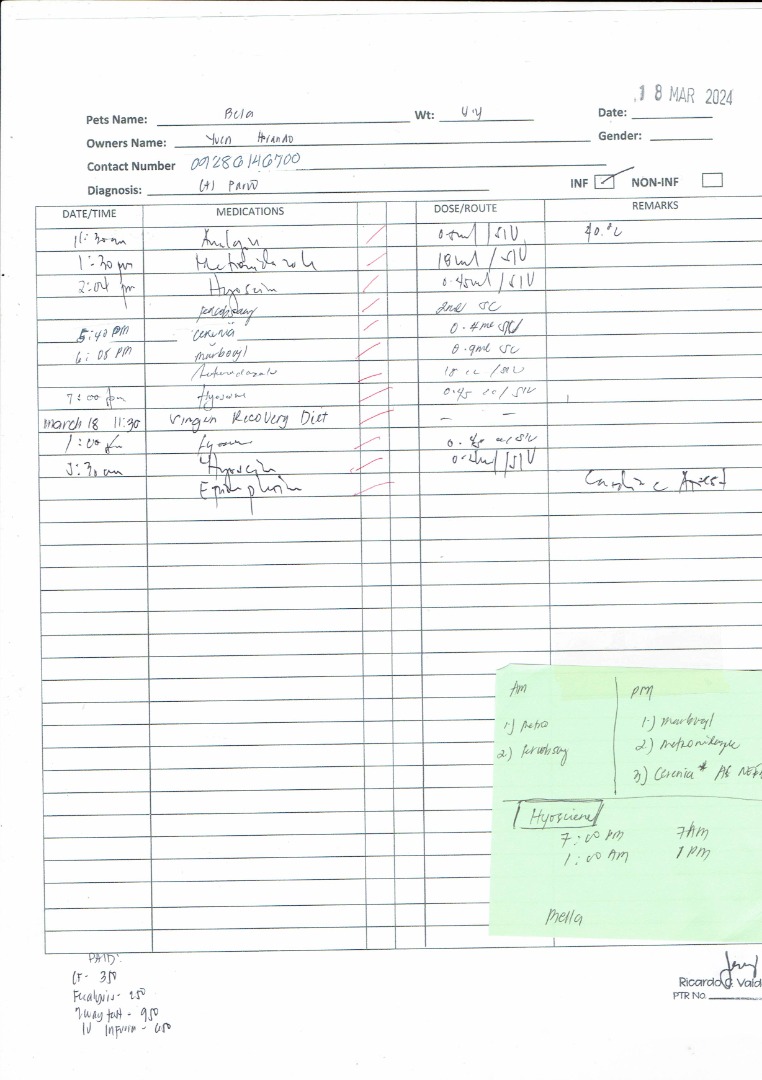 18 MAR 2024
Pets Name: Bela Wt: 4.4 Date:
Owners Name: Yuen Gender:
Contact Number 09286146700
Diagnosis: (+) Parvo INF NON-INF
DATE/TIME MEDICATIONS DOSE/ROUTE REMARKS
11:30am /SIV
1:30 pm Metronidazole 18ml /SIV
2:04 pm Hyoscin 0.45ml /SIV
2ml SC
5:40 PM cerenia 0.4ml
6:05 PM marbovyl 0.9ml SC
18 cc /SIV
7:00 pm Hyoscine 0.45 cc/SIV
march 18 11:30 Virgin Recovery Diet — —
1:00 cc/SIV
5:30am Hyoscin /SIV
Epinephrin Cardiac Arrest
AM PM
1.) Metro 1.) marbovyl
2) 2) metronidazole
3) Cerenia* AS NEE
Hyosciene
7:00 PM 7AM
1:00 AM 1PM
Bella
PAID:
CF- 350
Fecalysis- 250
7way test - 950
IV Infusion - 650
Ricardo Vald
PTR No.